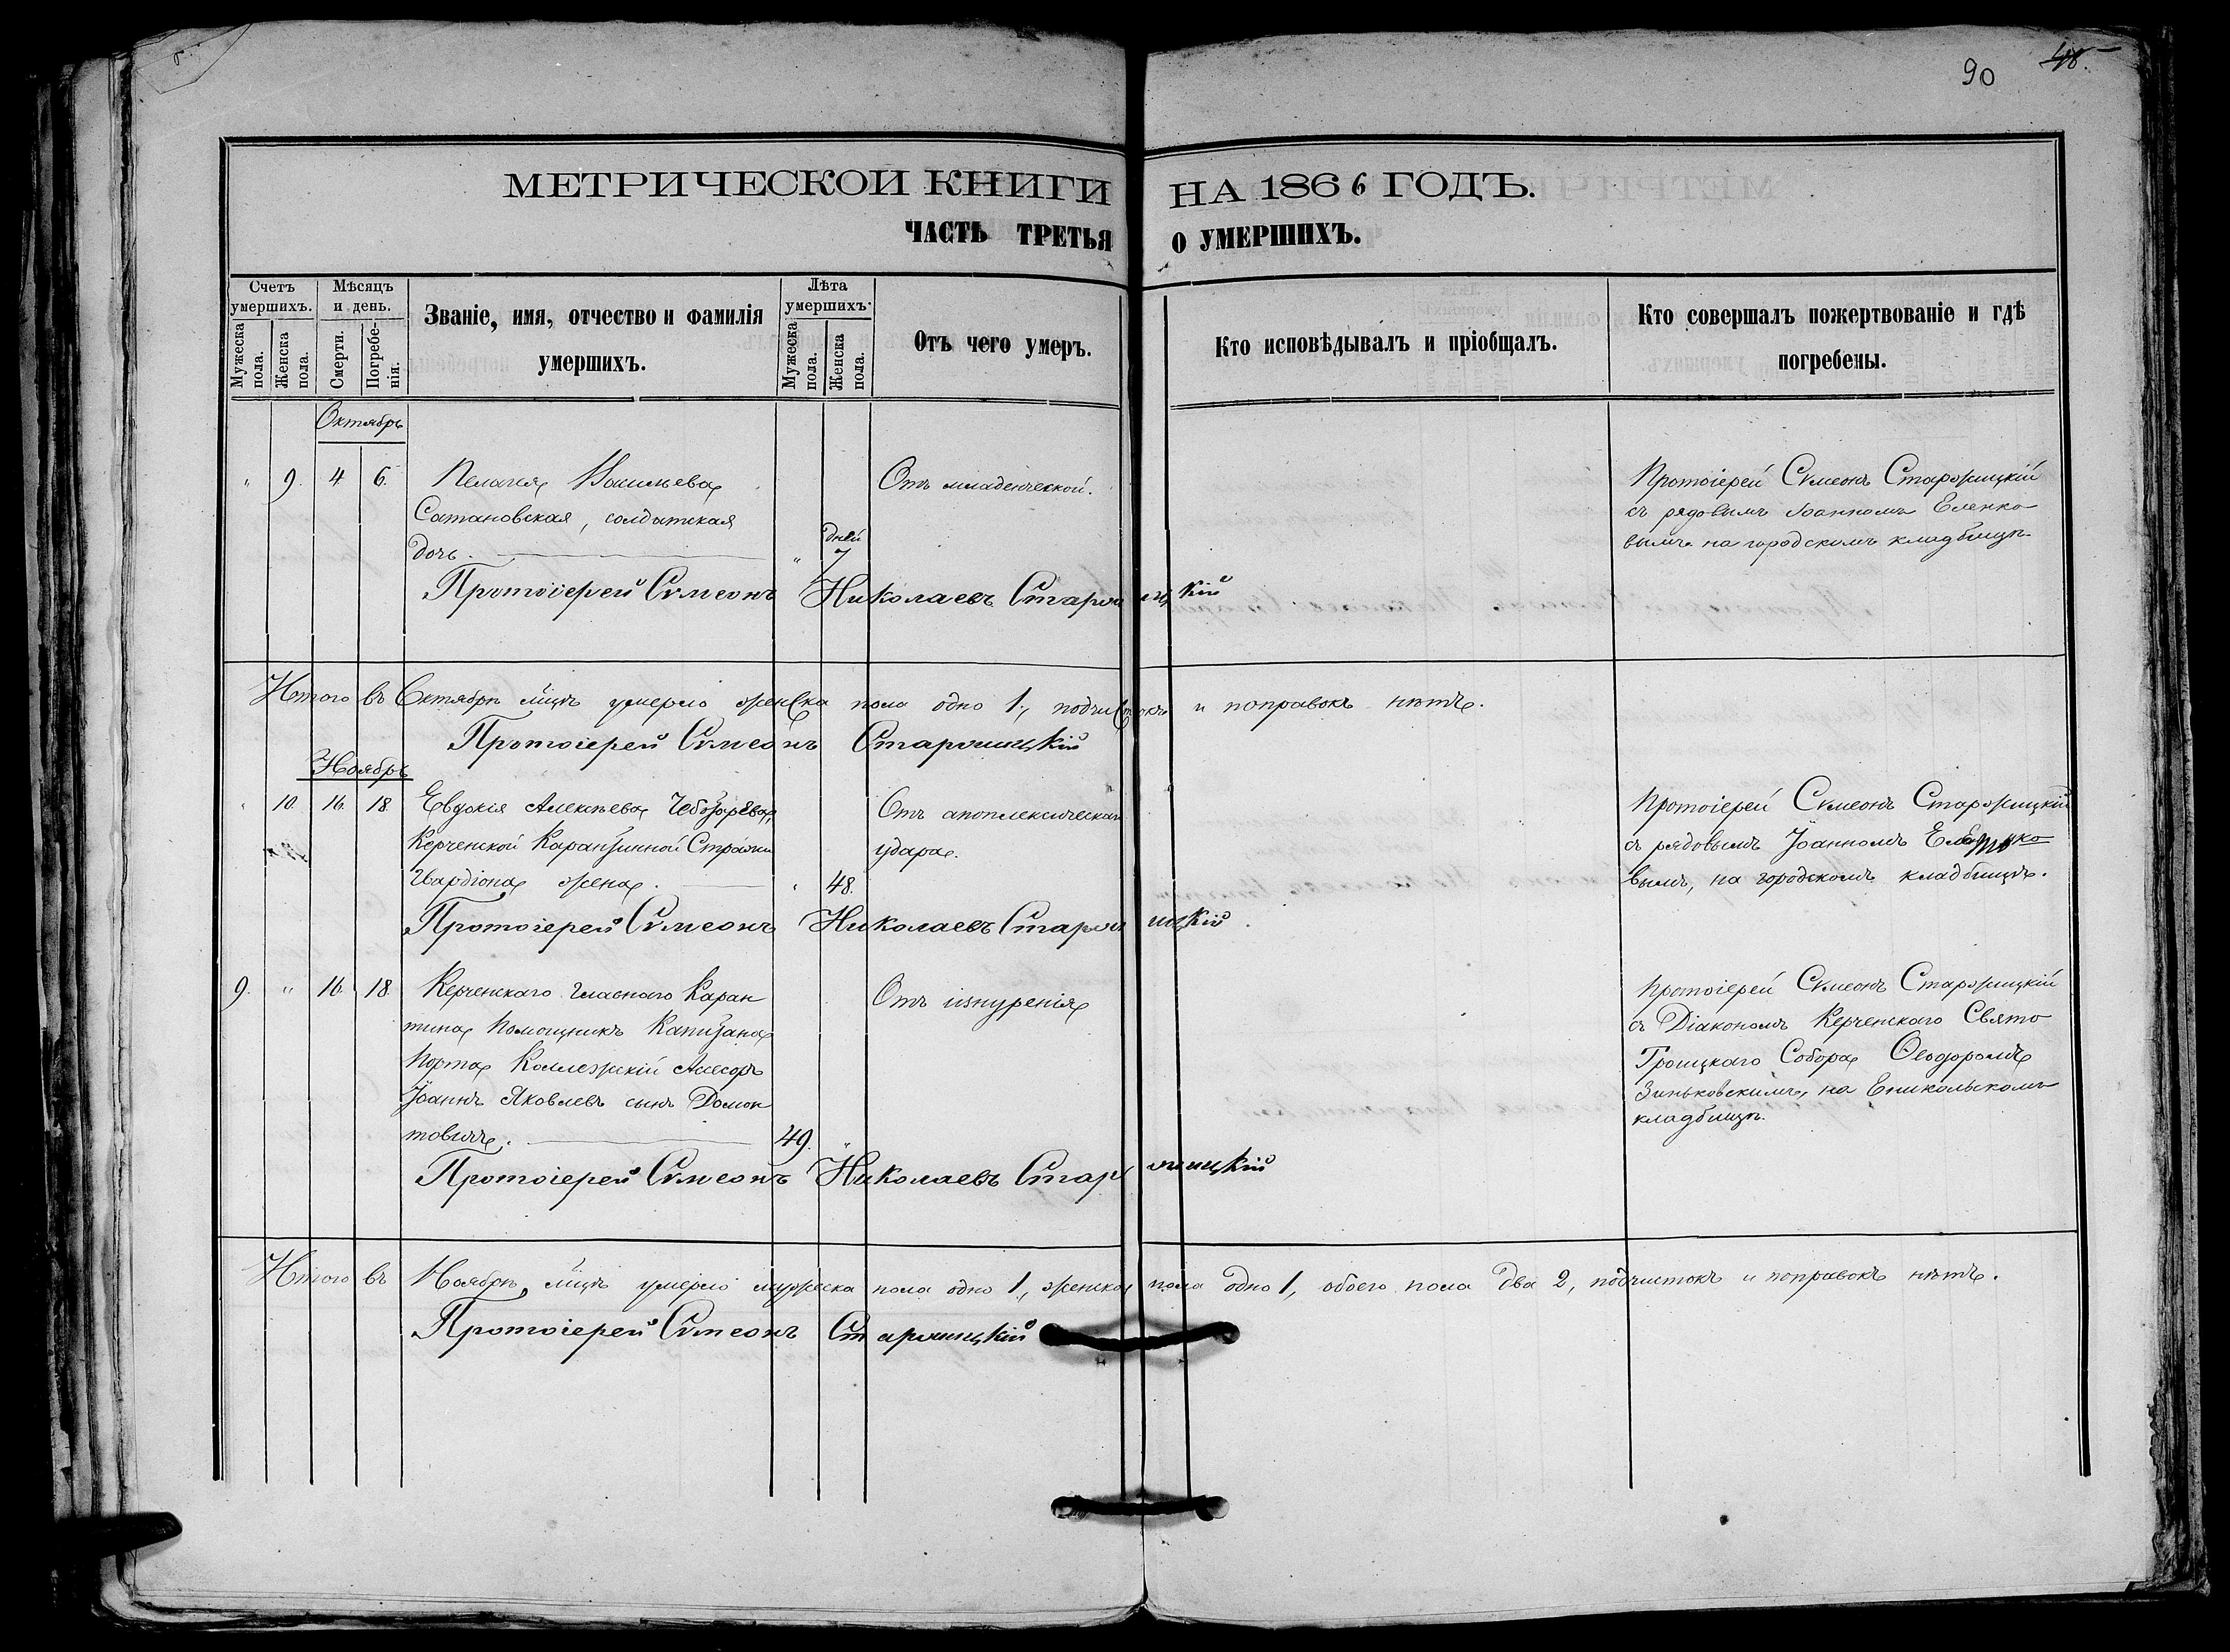 90 48.
МЕТРИЧЕСКОЙ КНИГИ НА 1866 ГОДЪ.
ЧАСТЬ ТРЕТЬЯ О УМЕРШИХЪ.
Счетъ умершихъ.
Мужеска пола.
Женска пола.
Мѣсяцъ и день.
Смерти.
Погребенія.
Званіе, имя, отчество и фамилія
умершихъ.
Лѣта умершихъ.
Мужеска пола.
Женска пола.
Отъ чего умеръ.
Кто исповѣдывалъ и пріобщалъ.
Кто совершалъ пожертвованіе и гдѣ
погребены.
Октябрь
" 9. 4 6. Пелагея Васильева Отъ младенческой. Протоіерей Сѵмеонъ Старожицкій
Сатановская, солдатская съ рядовымъ Іоанномъ Еленко
дочь. " дней 7 вымъ на городскомъ кладбищѣ
Протоіерей Сѵмеонъ Николаевъ Старожицкій
Итого въ Октябрѣ мцѣ умерло женска пола одно 1, подчистокъ и поправокъ нѣтъ.
Протоіерей Сѵмеонъ Старожицкій
Ноябрь
" 10. 16. 18. Евдокія Алексѣева Чеботарева, Отъ апоплексическаго Протоіерей Сѵмеонъ Старожицкій
Керченской Карантинной Стражи удара. съ рядовымъ Іоанномъ Еленко
Гвардіона жена. " 48. вымъ, на городскомъ кладбищѣ.
Протоіерей Сѵмеонъ Николаевъ Старожицкій.
9. " 16. 18. Керченскаго Главнаго Каран Отъ изнуренія Протоіерей Сѵмеонъ Старожицкій
тина Помощникъ Капитана съ Діакономъ Керченскаго Свято
Порта Коллежскій Асесоръ Троицкаго Собора Ѳеодоромъ
Іоаннъ Яковлевъ сынъ Домон Зиньковскимъ, на Еникольскомъ
товичь. 49. " кладбищѣ.
Протоіерей Сѵмеонъ Николаевъ Старожицкій
Итого въ Ноябрѣ мцѣ умерло мужеска пола одно 1, женска пола одно 1, обоего пола два 2, подчистокъ и поправокъ нѣтъ.
Протоіерей Сѵмеонъ Старожицкій